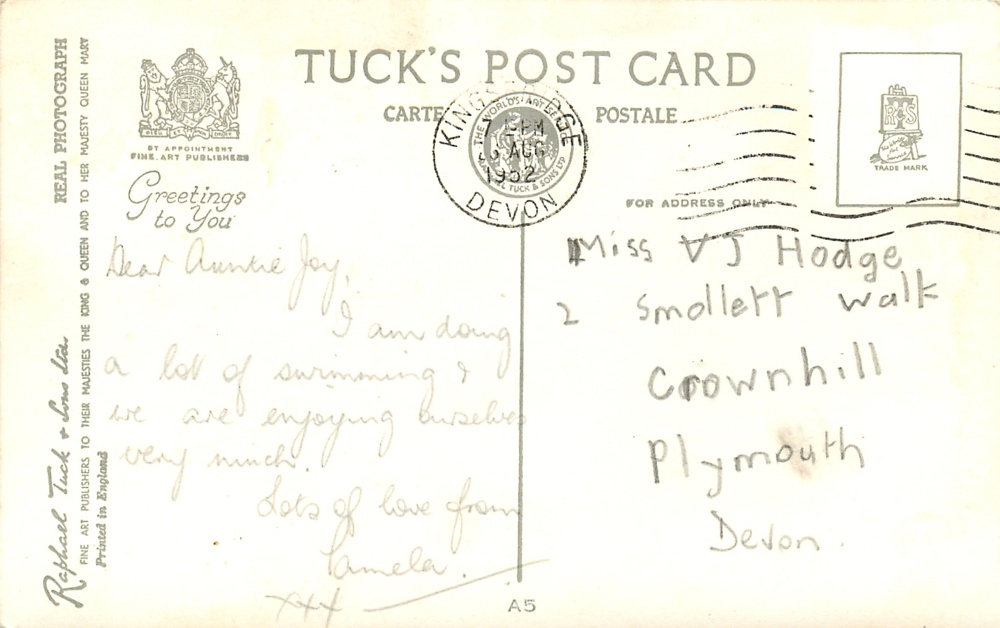 TUCK'S POST CARD
CARTE POSTALE
KINGSBRIDGE
PM
AUG
1952
DEVON
THE WORLD'S ART SERVICE
TUCK & SONS LTD
BY APPOINTMENT
FINE ART PUBLISHERS
Greetings
to You
TRADE MARK
FOR ADDRESS ONLY
REAL PHOTOGRAPH
Raphael Tuck & Sons Ltd.
FINE ART PUBLISHERS TO THEIR MAJESTIES THE KING & QUEEN AND TO HER MAJESTY QUEEN MARY
Printed in England
Dear Auntie Joy,
I am doing
a lot of swimming &
we are enjoying ourselves
very much.
Lots of love from
Pamela.
xxx
Miss VJ Hodge
2 Smollett walk
Crownhill
Plymouth
Devon.
A5